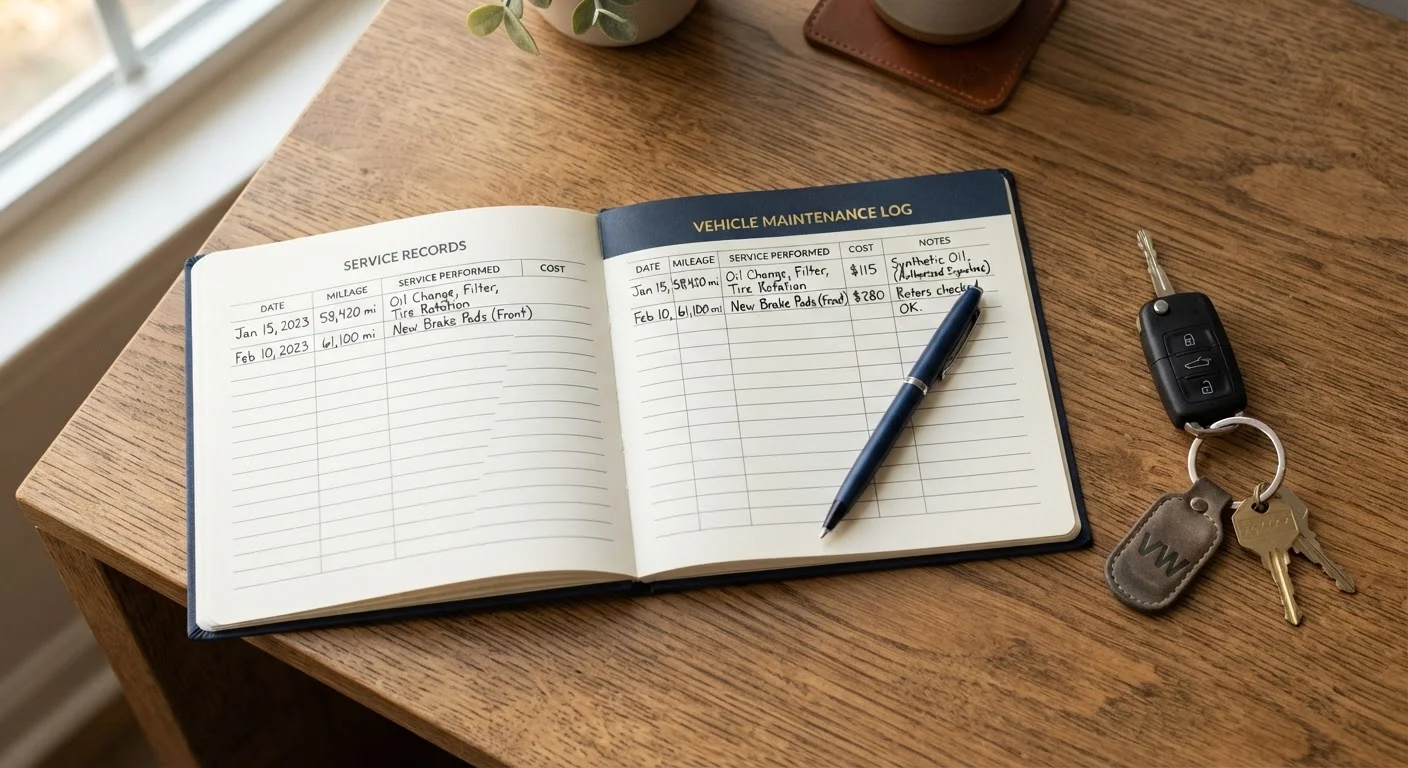 SERVICE RECORDS
DATE MILLAGE SERVICE PERFORMED COST
Jan 15, 2023 58,420 mi Oil Change, Filter,
Tire Rotation
Feb 10, 2023 61,100 mi New Brake Pads (Front)
VEHICLE MAINTENANCE LOG
DATE MILEAGE SERVICE PERFORMED COST NOTES
Jan 15, mi Oil Change, Filter, $115 Synthetic Oil.
Tire Rotation
Feb 10, 61,100 mi New Brake Pads (Front) $280 Roters
OK.
VW